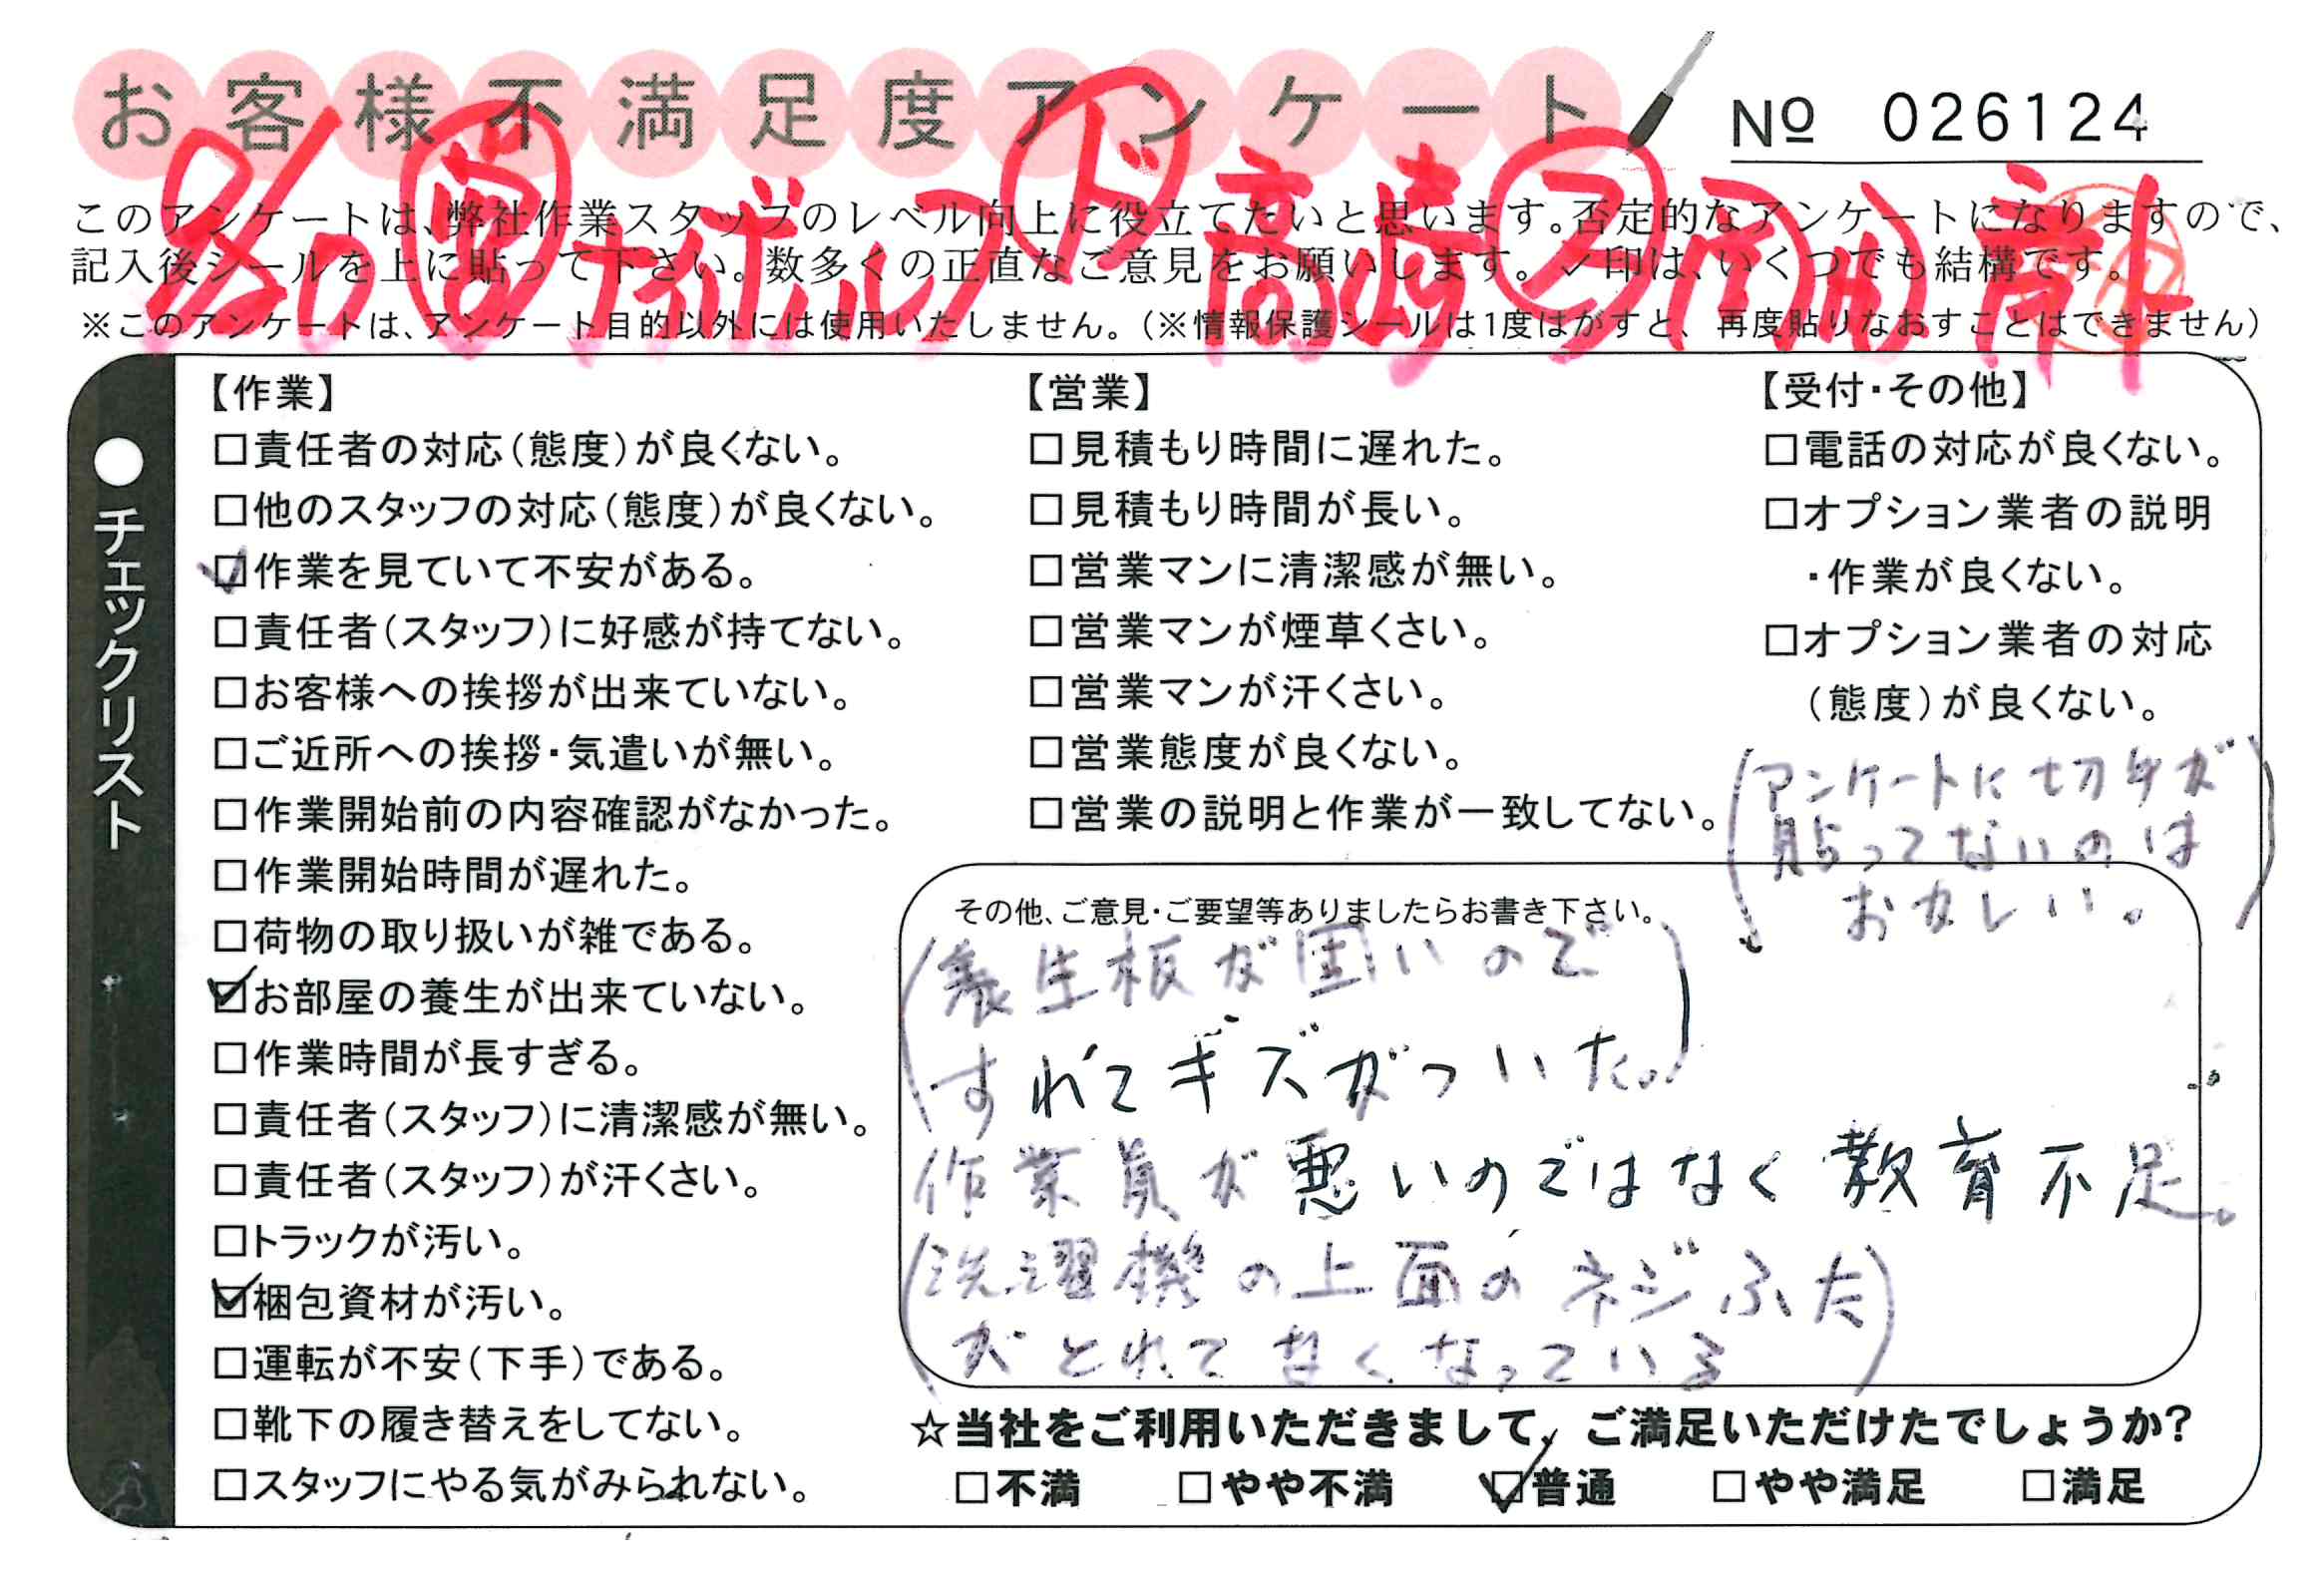 お客様不満足度アンケート
№ 026124
このアンケートは、弊社作業スタッフのレベル向上に役立てたいと思います。否定的なアンケートになりますので、
記入後シールを上に貼って下さい。数多くの正直なご意見をお願いします。✓印は、いくつでも結構です。
※このアンケートは、アンケート目的以外には使用いたしません。(※情報保護シールは1度はがすと、再度貼りなおすことはできません)
ド 高崎
●チェックリスト
【作業】
□責任者の対応(態度)が良くない。
□他のスタッフの対応(態度)が良くない。
☑作業を見ていて不安がある。
□責任者(スタッフ)に好感が持てない。
□お客様への挨拶が出来ていない。
□ご近所への挨拶・気遣いが無い。
□作業開始前の内容確認がなかった。
□作業開始時間が遅れた。
□荷物の取り扱いが雑である。
☑お部屋の養生が出来ていない。
□作業時間が長すぎる。
□責任者(スタッフ)に清潔感が無い。
□責任者(スタッフ)が汗くさい。
□トラックが汚い。
☑梱包資材が汚い。
□運転が不安(下手)である。
□靴下の履き替えをしてない。
□スタッフにやる気がみられない。
【営業】
□見積もり時間に遅れた。
□見積もり時間が長い。
□営業マンに清潔感が無い。
□営業マンが煙草くさい。
□営業マンが汗くさい。
□営業態度が良くない。
□営業の説明と作業が一致してない。
【受付・その他】
□電話の対応が良くない。
□オプション業者の説明
・作業が良くない。
□オプション業者の対応
(態度)が良くない。
(アンケートに切手が
貼ってないのは
おかしい。)
その他、ご意見・ご要望等ありましたらお書き下さい。
(養生板が固いので
すれてキズがついた。)
作業員が悪いのではなく教育不足。
(洗濯機の上面のネジふた
がとれて無くなっている)
☆当社をご利用いただきまして、ご満足いただけたでしょうか?
□不満 □やや不満 ☑普通 □やや満足 □満足